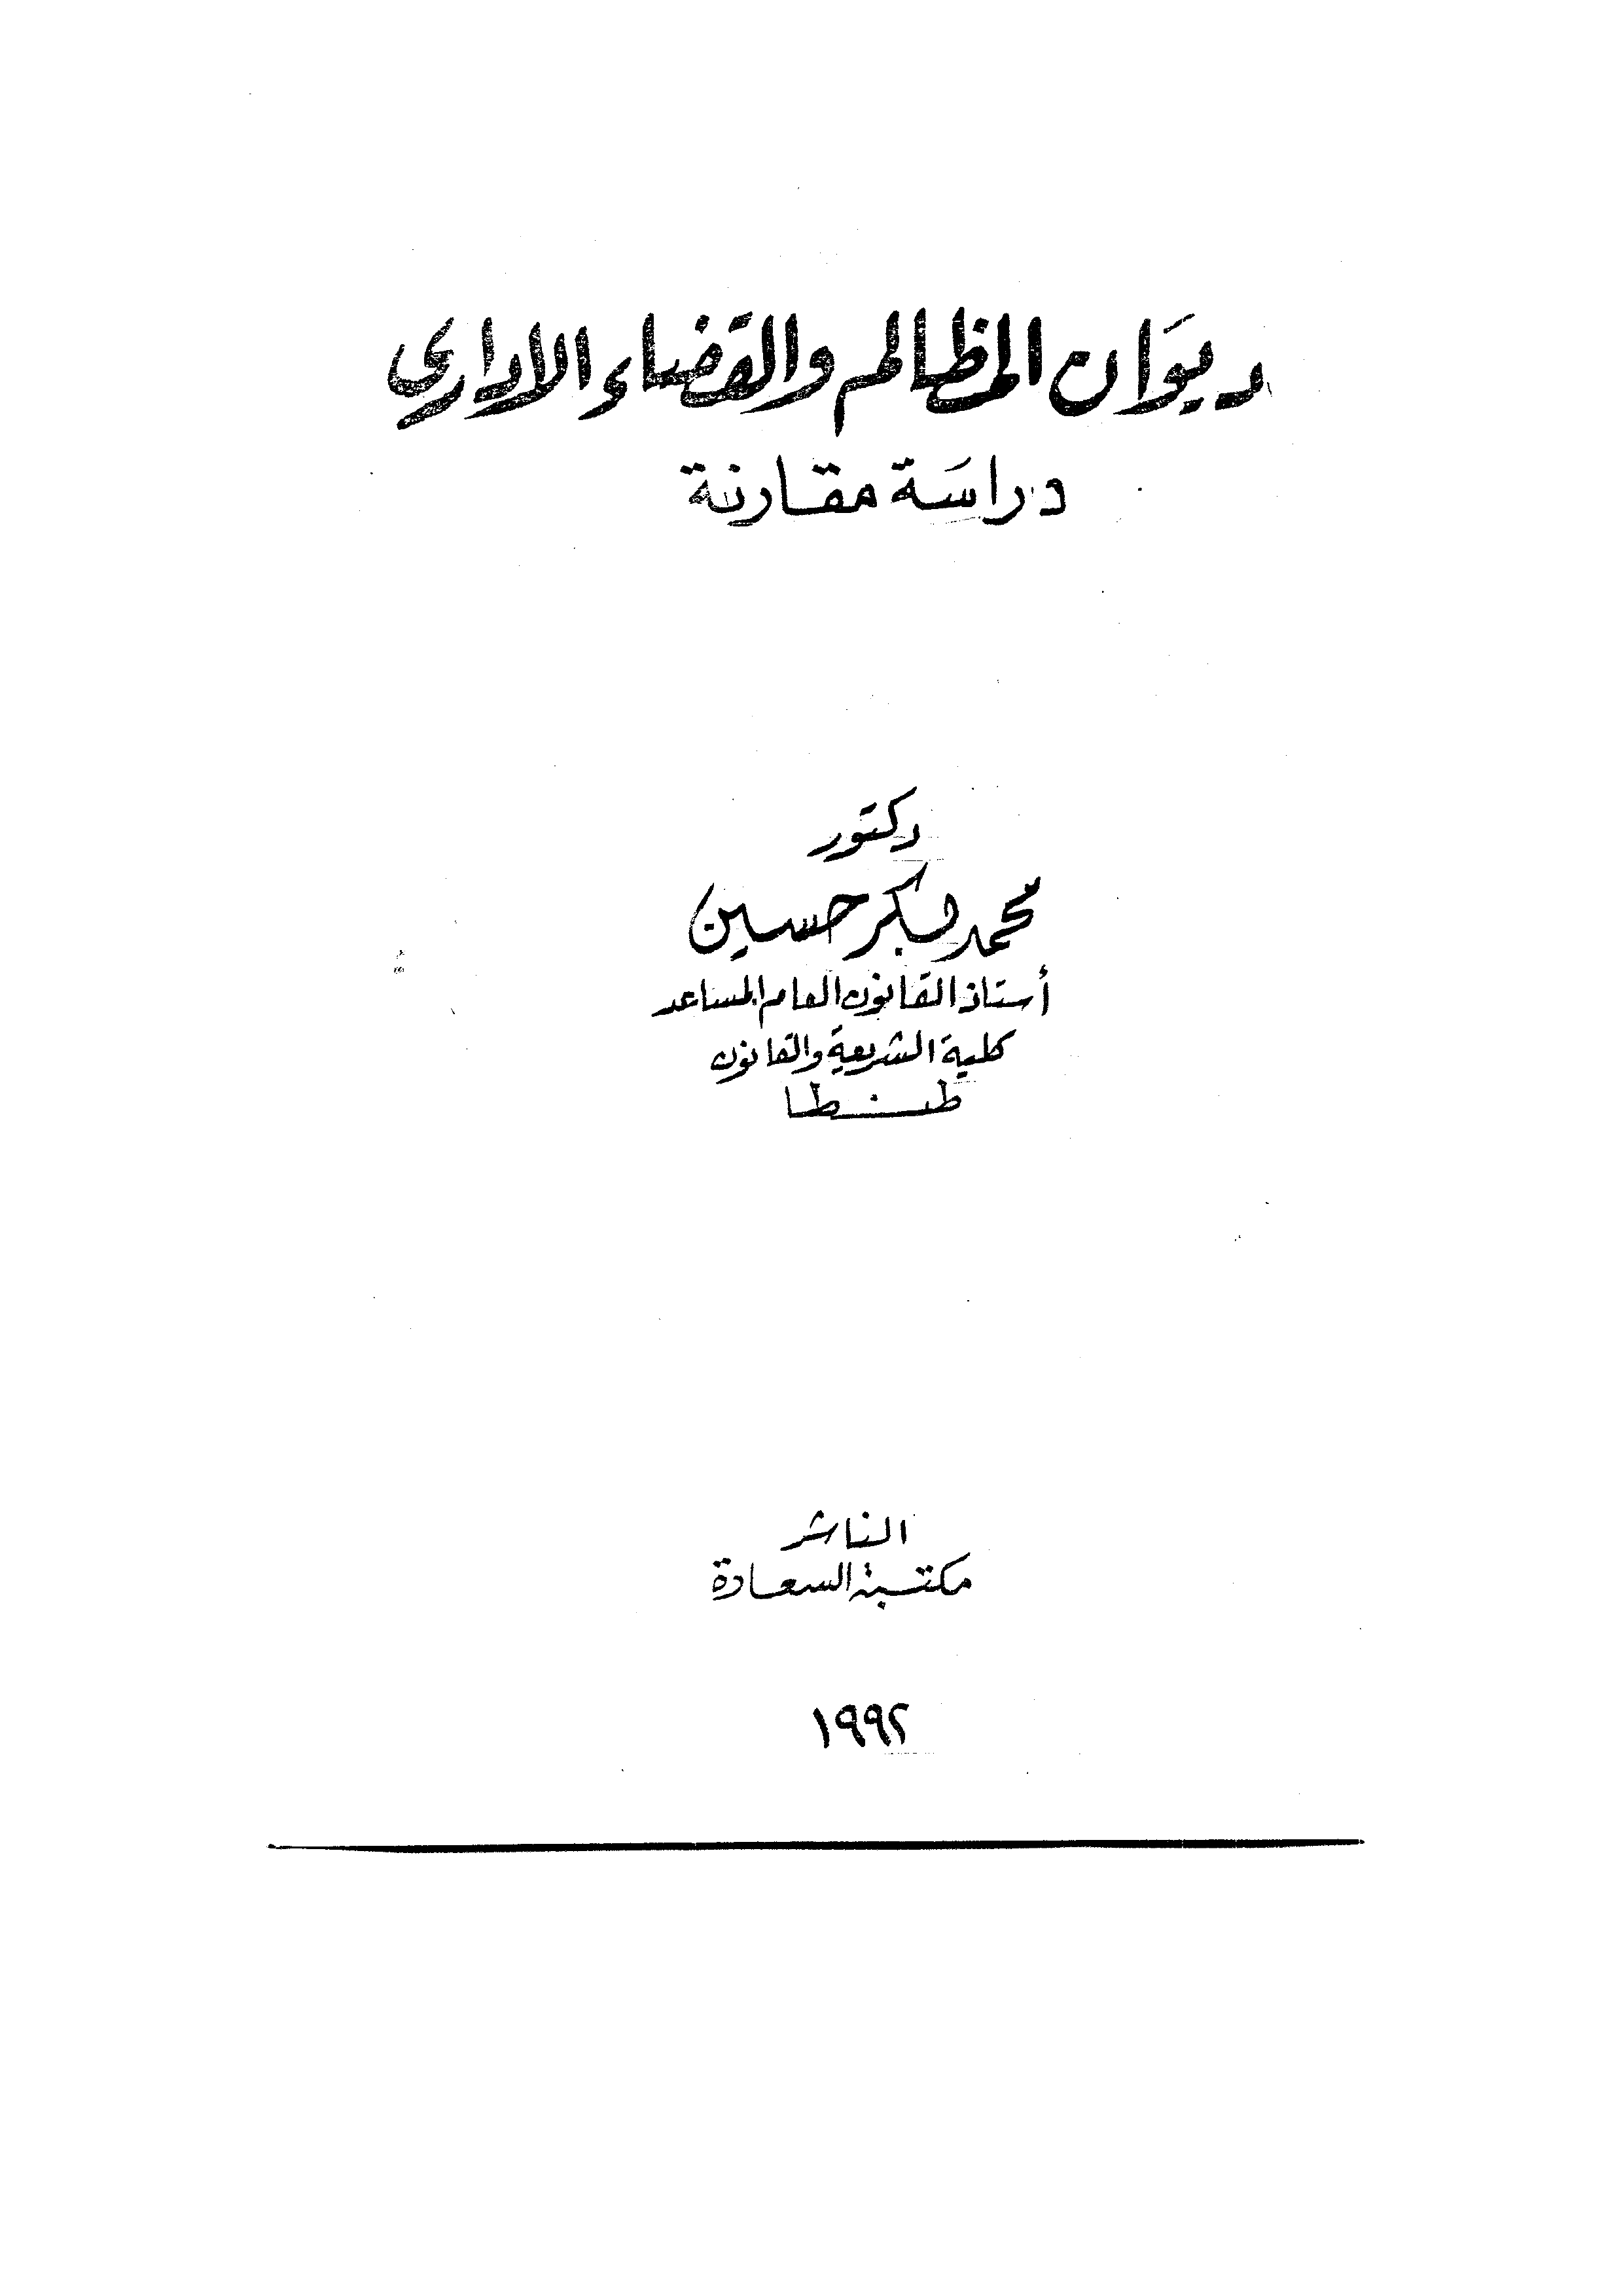 ديوَان المظالم والقضاء الاداري
دراسَة مقارنة
دكتور
محمد بكر حسين
أستاذ القانون العام المساعد
كلية الشريعة والقانون
طنطا
الناشر
مكتبة السعادة
١٩٩٢